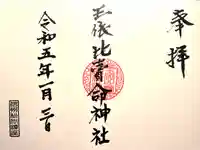 奉拝
玉依比賣命神社
令和五年一月三日